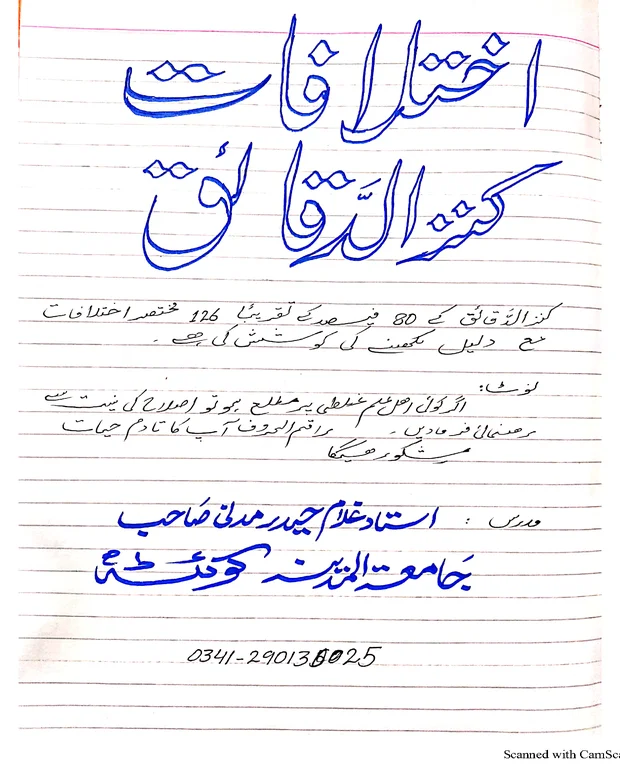 اختلافات
کنز الدَّقائق
کنز الدَّقائق کے 80 فیصد کے تقریبًا 126 مختصر اختلافات
مع دلیل لکھنے کی کوشش کی ہے۔
نوٹ:
اگر کوئی اھل علم غلطی پر مطلع ہو تو اصلاح کی نیت سے
رھنمائی فرمادیں۔ راقم الحروف آپ کا تادم حیات
مشکور رھیگا
مدرس: استاد غلام حیدر مدنی صَاحب
جَامعۃ المدینہ کوئٹہ
0341-29013 025
Scanned with CamSca